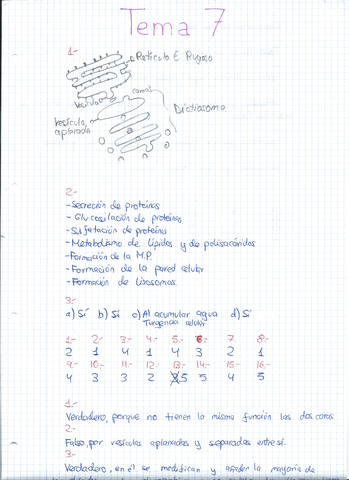 Tema 7
1.-
Retículo E Rugoso
vesícula
canal
vesícula
aplanada
Dictiosoma
2.-
-Secreción de proteínas
- Glucosilación de proteínas
-Sulfatación de proteínas
-Metabolismo de lípidos y de polisacáridos
-Formación de la M.P.
- Formación de la pared celular
-Formación de lisosomas.
3.-
a) Sí b) Sí c) Al acumular agua d) Sí
Turgencia celular
1.- 2.- 3.- 4.- 5.- 6.- 7 8.-
2 1 4 1 4 3 2 1
9.- 10.- 11.- 12.- 13.- 14.- 15.- 16.-
4 3 3 2 5 5 4 5
1.-
Verdadero, porque no tienen la misma función las dos caras
2.-
Falso, por vesículas aplanadas y separadas entre si.
3.-
Verdadero, en él se modifican y añaden la mayoría de